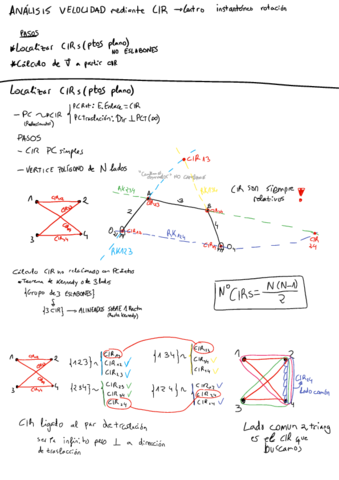 ANÁLISIS VELOCIDAD mediante CIR → centro instantáneo rotación
PASOS
*Localizar CIRs (ptos plano)
NO ESLABONES
*Cálculo de V a partir CIR
Localizar CIRs (ptos plano)
- PC ~> CIR
PC Rot: E. Enlace = CIR
PC traslación: Dir ⊥ PCT (∞)
PASOS
- CIR PC simples
- VERTICE POLÍGONO de N lados
CIR13
CIR SON siempre relativos!
CIR 24
1 2
3 4
A
B
2
3
4
O2
O4
RK134
RK123
RK124
Cálculo CIR no relacionado con PC
*Teorema de Kennedy o de 3 lados
{Grupo de 3 ESLABONES}
{3 CIR} → ALINEADOS SOBRE 1 Recta
(Recta Kennedy)
Nº CIRs = N(N-1)/2
1 2
3 4
{123} ~
CIR12 ✓
CIR23 ✓
CIR13
{134} ~
CIR13
CIR34 ✓
CIR14 ✓
{234} ~
CIR23 ✓
CIR34 ✓
CIR24
{124} ~
CIR12 ✓
CIR24
CIR14 ✓
1 2
3 4
CIR24
Lado común
CIR ligado al par de traslación
sería infinito pero ⊥ a dirección
de traslación
Lado común 2 triang
es el CIR que
buscamos